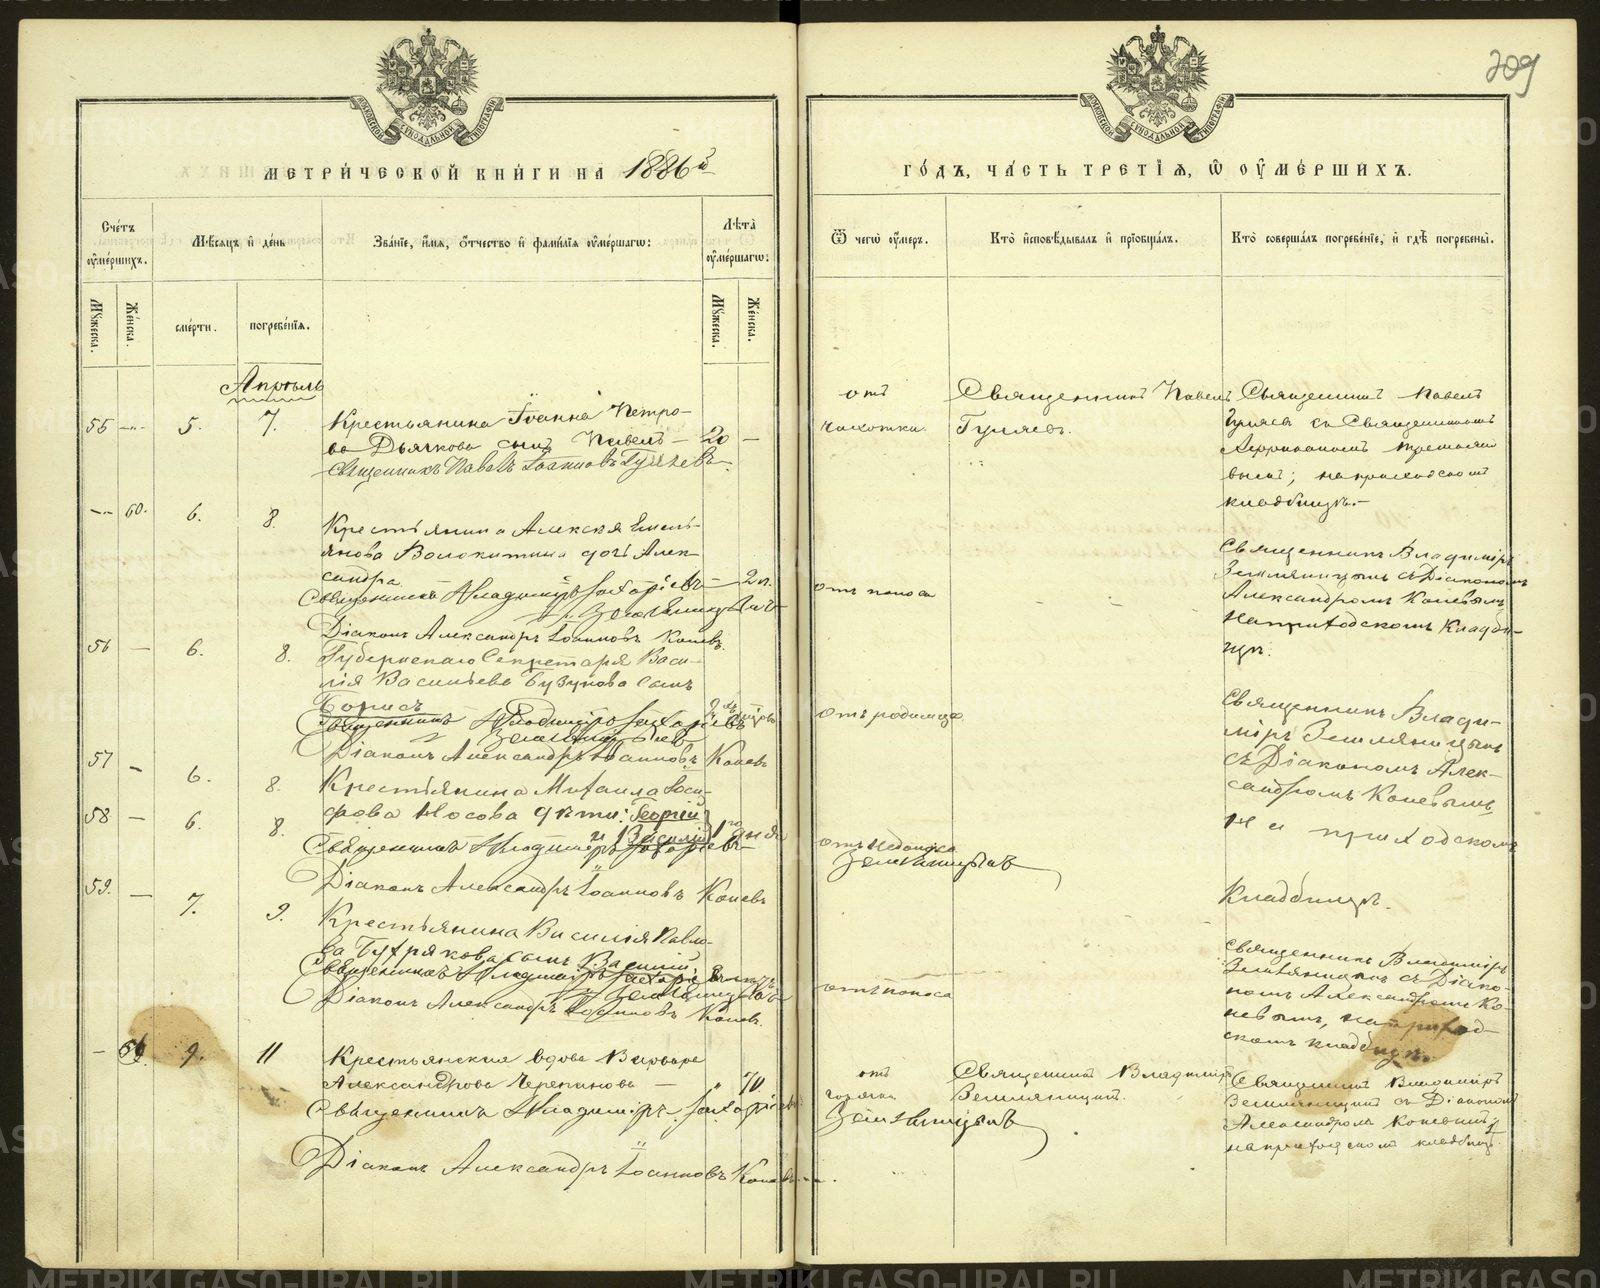 209
МЕТРИ́ЧЕСКОЙ КНИ́ГИ НА 1886й
ГО́ДЪ, ЧА́СТЬ ТРЕТІЯ, Ѿ ОУМЕ́РШИХЪ.
Сче́тъ оуме́ршихъ.
Мѣ́сяцъ и де́нь
Зва́ніе, и́мя, о́тчество и фами́лія оуме́ршагѡ:
Лѣта̀ оуме́ршагѡ:
Ѿ чегѡ̀ оу́меръ.
Кто̀ исповѣ́дывалъ и пріобща́лъ.
Кто̀ соверша́лъ погребе́ніе, и гдѣ̀ погребены̀.
Мꙋжеска.
Же́нска.
сме́рти.
погребе́нія.
Мꙋжеска.
Же́нска.
Апрѣль
55 — 5. 7. Крестьянина Іоанна Петро-
ва Дьячкова сынъ Павелъ — 20 —
Священникъ Павелъ Іоанновъ Гуляевъ.
отъ
чахотки.
Священникъ Павелъ
Гуляевъ.
Священникъ Павелъ
Гуляевъ съ Священникомъ
; на приходскомъ
кладбищѣ.
— 60. 6. 8. Крестьянина Алексѣя Емель-
янова Волокитина дочь Алек-
сандра — 2 н.
Священникъ Владиміръ Захаріевъ
Земляницынъ
Діаконъ Александръ Іоанновъ Коневъ.
отъ поноса
Священникъ Владиміръ
Земляницынъ съ Діакономъ
Александромъ Коневымъ,
На приходскомъ кладби-
щѣ.
56 — 6. 8. Губернскаго Секретаря Васи-
лія Васильева Бузунова сынъ
Борисъ
Священникъ Владиміръ Захаріевъ
Земляницынъ
Діаконъ Александръ Іоанновъ Коневъ
отъ родимца
Священникъ Влади-
міръ Земляницынъ
съ Діакономъ Алек-
сандромъ Коневымъ
На приходскомъ
Кладбищѣ.
57 — 6. 8. Крестьянина Михаила Іоси-
58 — 6. 8. фова Носова дѣти: Георгій
и Василій 1го дня
Священникъ Владиміръ Захаріевъ
Земляницынъ
Діаконъ Александръ Іоанновъ Коневъ
59. — 7. 9. Крестьянина Василія Павло-
ва Бухрякова сынъ Василій
Священникъ Владиміръ Захаріевъ
Земляницынъ
Діаконъ Александръ Іоанновъ Коневъ.
отъ поноса
Священникъ Владиміръ
Земляницынъ съ Діако-
номъ Александромъ Ко-
невымъ, на приход-
скомъ кладбищѣ.
— 9. 11 Крестьянская вдова Варвара
Александрова Черепанова — " 70
Священникъ Владиміръ Захаріевъ
Земляницынъ
Діаконъ Александръ Іоанновъ Коневъ.
отъ
горячки
Священникъ Владиміръ
Земляницынъ.
Священникъ Владиміръ
Земляницынъ съ Діакономъ
Александромъ Коневымъ
на приходскомъ кладбищѣ.
METRIKI.GASO-URAL.RU